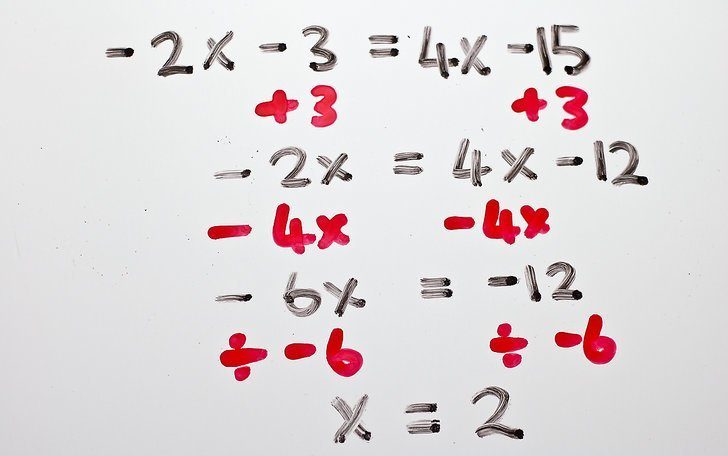 - 2x - 3 = 4x - 15
+3 +3
- 2x = 4x - 12
- 4x - 4x
- 6x = - 12
÷ - 6 ÷ - 6
x = 2